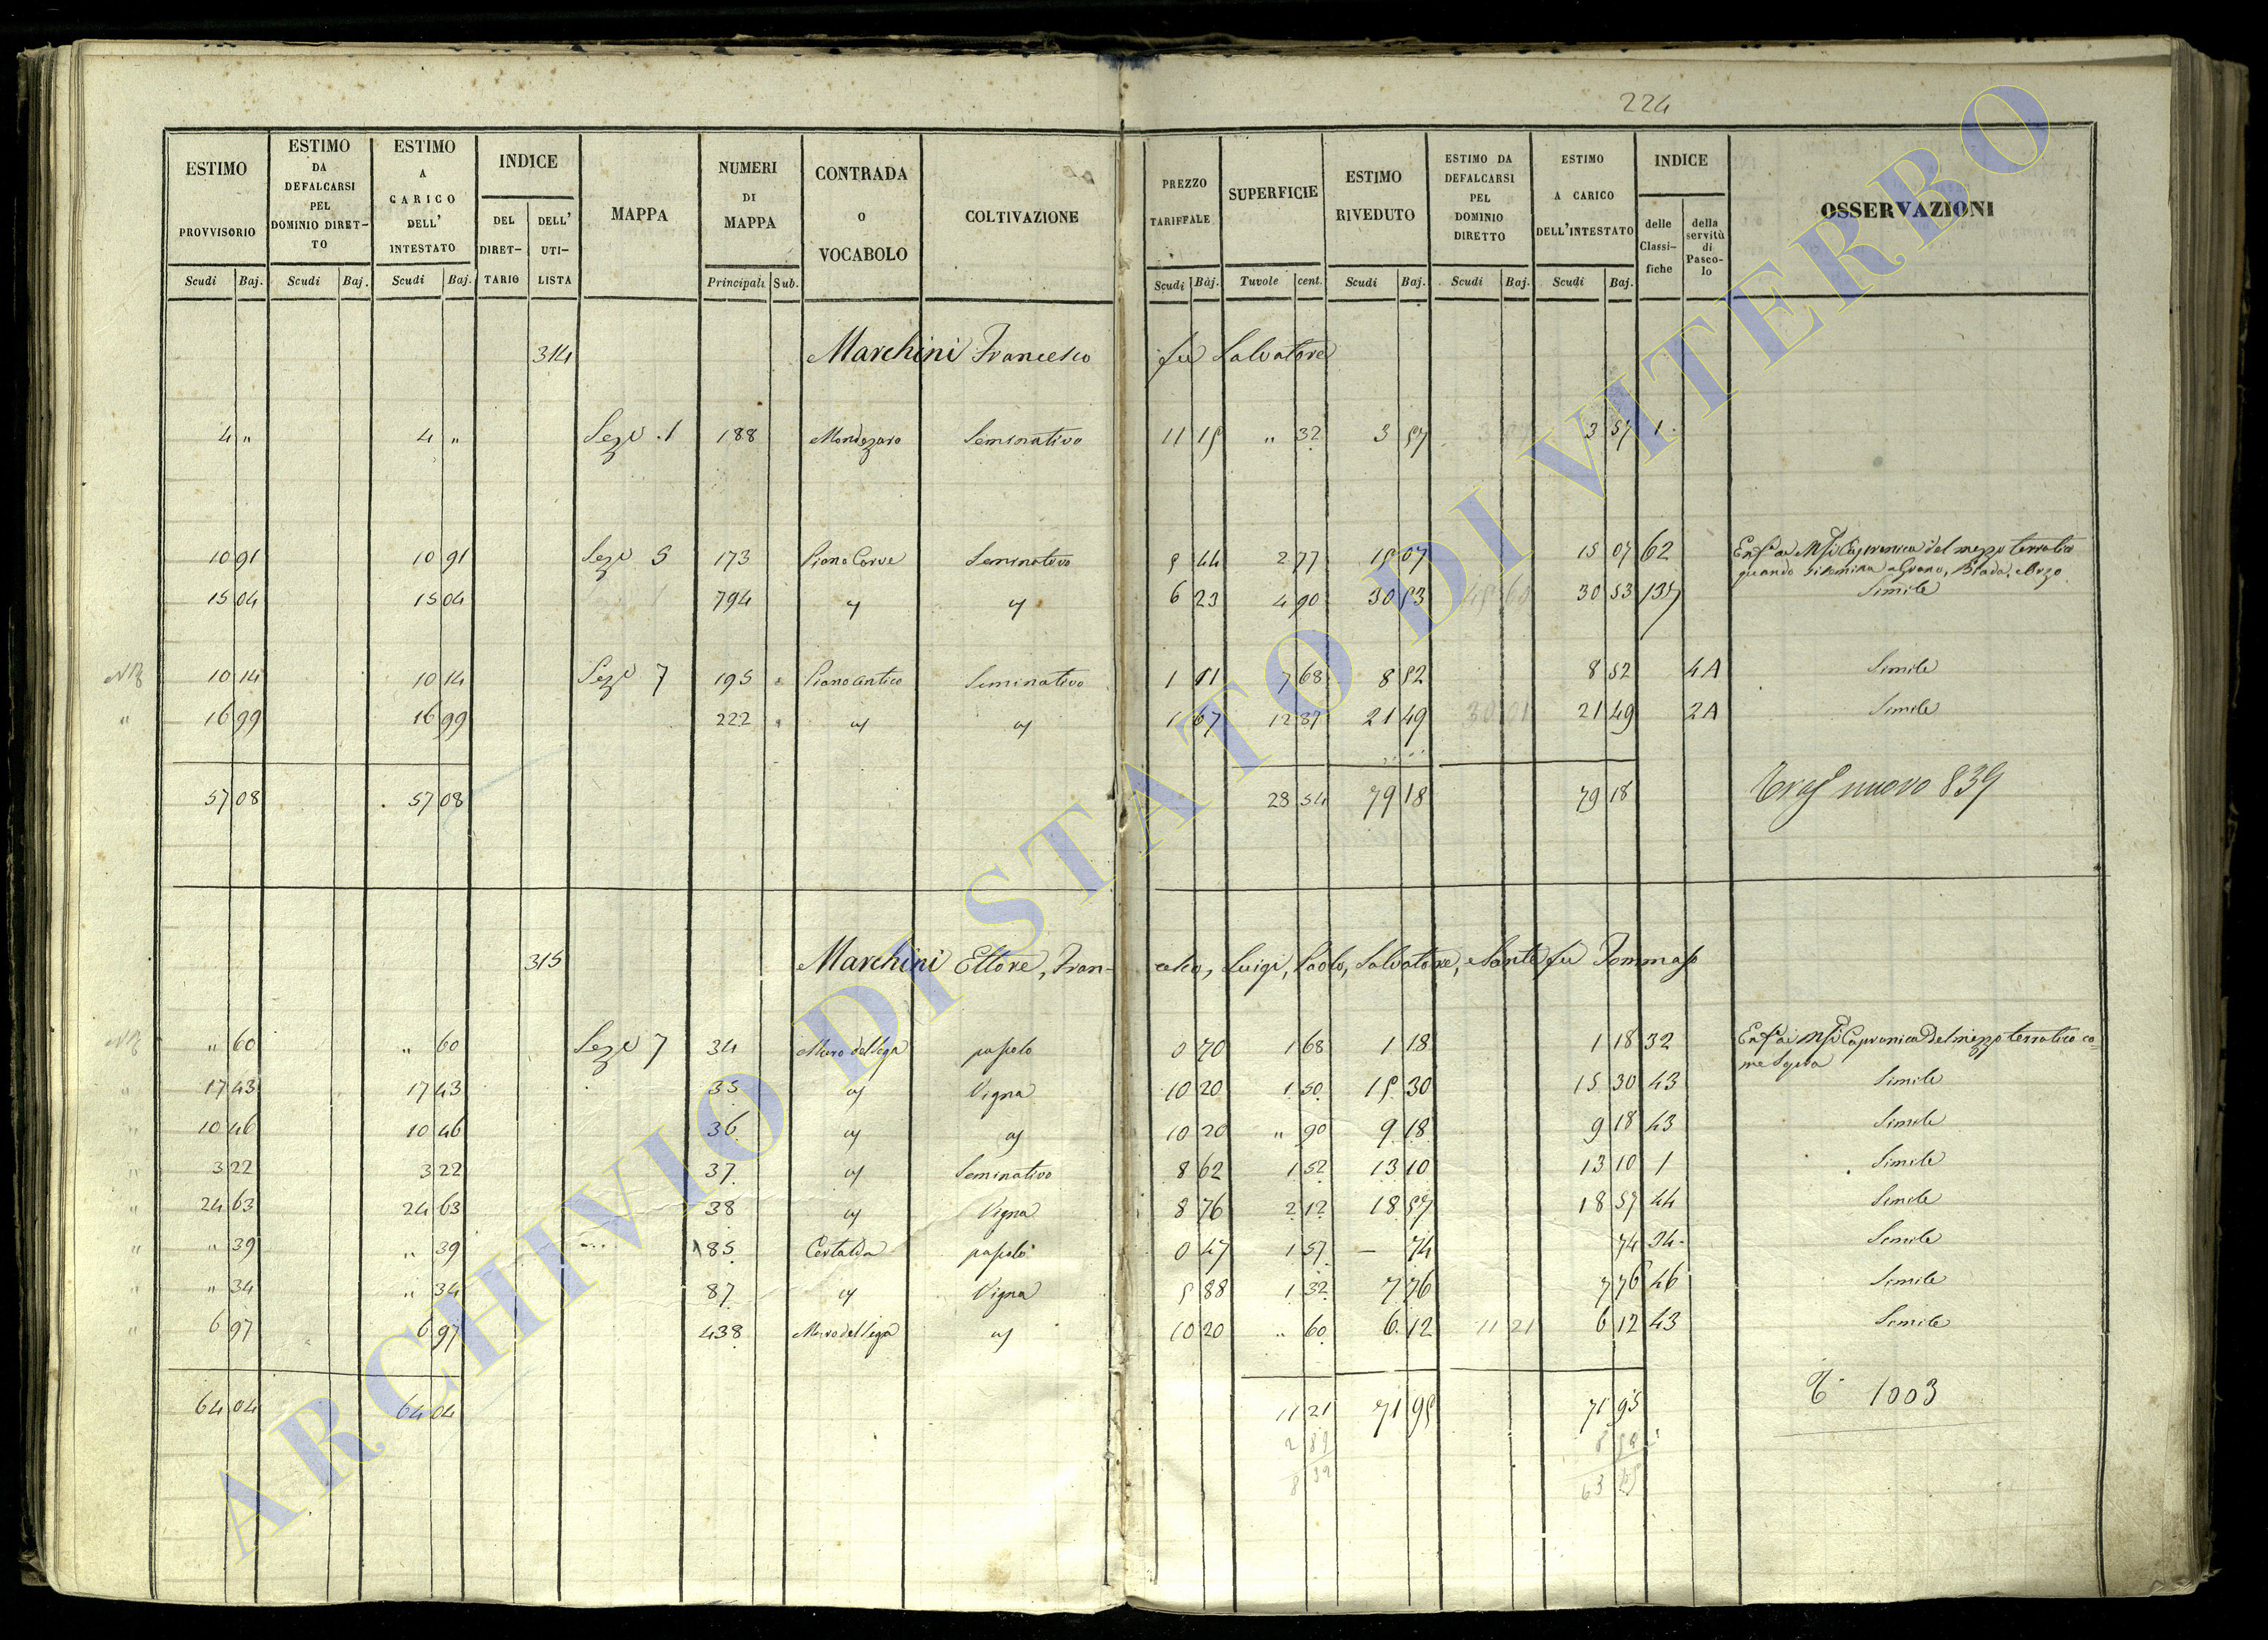 224
ESTIMO PROVVISORIO Scudi Baj.
ESTIMO DA DEFALCARSI PEL DOMINIO DIRET-TO Scudi Baj.
ESTIMO A CARICO DELL' INTESTATO Scudi Baj.
INDICE DEL DIRET-TARIO DELL' UTI-LISTA
MAPPA
NUMERI DI MAPPA Principali Sub.
CONTRADA O VOCABOLO
COLTIVAZIONE
PREZZO TARIFFALE Scudi Baj.
SUPERFICIE Tavole cent.
ESTIMO RIVEDUTO Scudi Baj.
ESTIMO DA DEFALCARSI PEL DOMINIO DIRETTO Scudi Baj.
ESTIMO A CARICO DELL'INTESTATO Scudi Baj.
INDICE delle Classi-fiche della servitù di Pasco-lo
OSSERVAZIONI
314 Marchini Francesco fu Salvatore
4 " 4 " Sez. 1 188 Seminativo 11 15 " 32 3 57 3 57 1
10 91 10 91 Sez. 5 173 Seminativo 5 44 2 77 15 07 15 07 62
quando si semina a Grano, Biada, Orzo
15 04 15 04 794 6 23 4 90 30 53 30 53 135 Simile
NB 10 14 10 14 Sez. 7 195 Piano antico Seminativo 1 11 7 68 8 52 8 52 4A Simile
" 16 99 16 99 222 1 67 12 87 21 49 21 49 2A Simile
57 08 57 08 28 54 79 18 79 18 nuovo 839
315 Marchini Ettore, Francesco, Luigi, Paolo, Salvatore, e Sante fu Tommaso
NB " 60 " 60 Sez. 7 34 0 70 1 68 1 18 1 18 32
" 17 43 17 43 35 Vigna 10 20 1 50 15 30 15 30 43 Simile
" 10 46 10 46 36 10 20 " 90 9 18 9 18 43 Simile
" 3 22 3 22 37 Seminativo 8 62 1 52 13 10 13 10 1 Simile
" 24 63 24 63 38 Vigna 8 76 2 12 18 57 18 57 44 Simile
" " 39 " 39 85 0 47 1 57 — 74 74 34 Simile
" " 34 " 34 87 Vigna 5 88 1 32 7 76 7 76 46 Simile
" 6 97 6 97 438 10 20 " 60 6 12 11 21 6 12 43 Simile
64 04 64 04 11 21 71 95 71 95 1003
ARCHIVIO DI STATO DI VITERBO